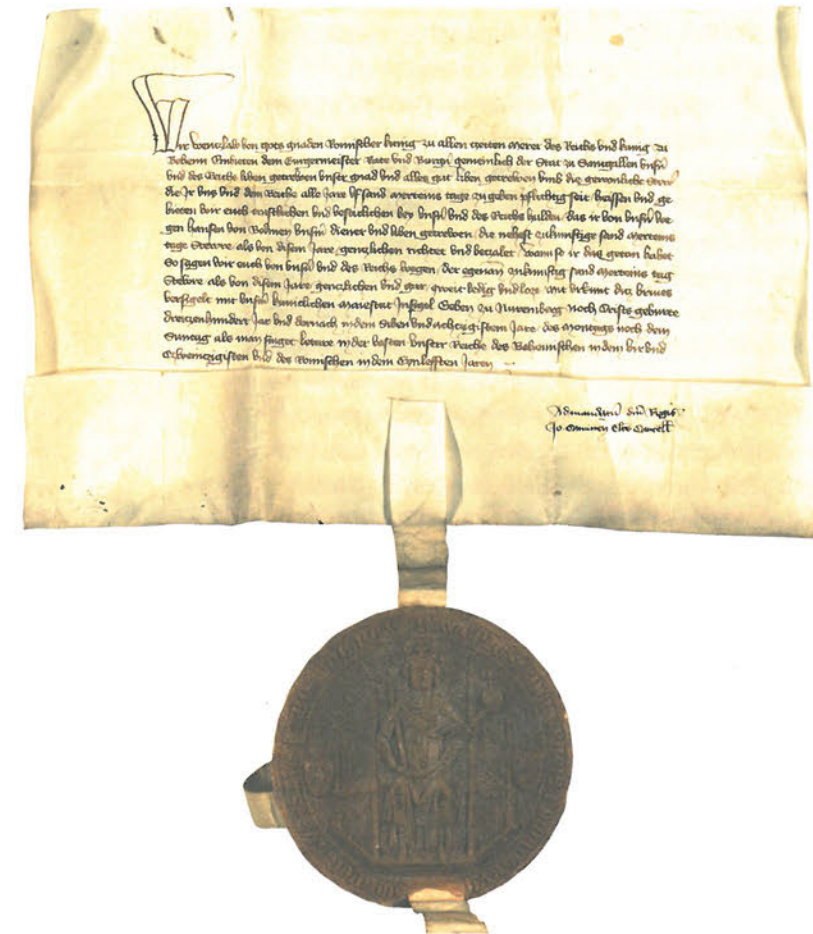 Wir Wenczlaw von gots gnaden Romischer kunig zu allen czeiten merer des Reichs vnd kunig zu
Behem Embieten dem Burgermeister Rate vnd Burgern gemeinlich der Stat zu Santgallen vnsern
vnd des Reichs liben getrewen vnser gnad vnd alles gut liben getrewen vmb die gewonliche Stewr
die ir vns vnd dem Reiche alle Jare vf sand Merteins tage zu geben pflichtig seit heissen vnd ge
bieten wir euch ernstlichen vnd vesticlichen bey vnsern vnd des Reichs hulden das ir von vnsern we
gen Hansen von Bodmen vnserm diener vnd liben getrewen die nehest zukunftige sand Merteins
tage Stewre als von disem Jare genczlichen richtet vnd beczalet wann so ir das getan habet
So sagen wir euch von vnsern vnd des Reichs wegen der egenan zukunftig sand Merteins tag
Stewre als von disem Jare genczlichen vnd gar qweit ledig vnd loze mit vrkunt dicz brieues
versigelt mit vnserm kuniclichen Maiestat Insigel Geben zu Nuremberg noch Crists geburte
dreiczenhundert Jar vnd dornach in dem Siben vnd achczigistem Jare des Montags noch dem
Suntag als man singet Letare in der vasten vnserr Reiche des Behemischen in dem vir vnd
Czwenczigisten vnd des Romischen in dem Eynlefften Jaren
Ad mandatum domini Regis
Jo Caminen Elect Cancell